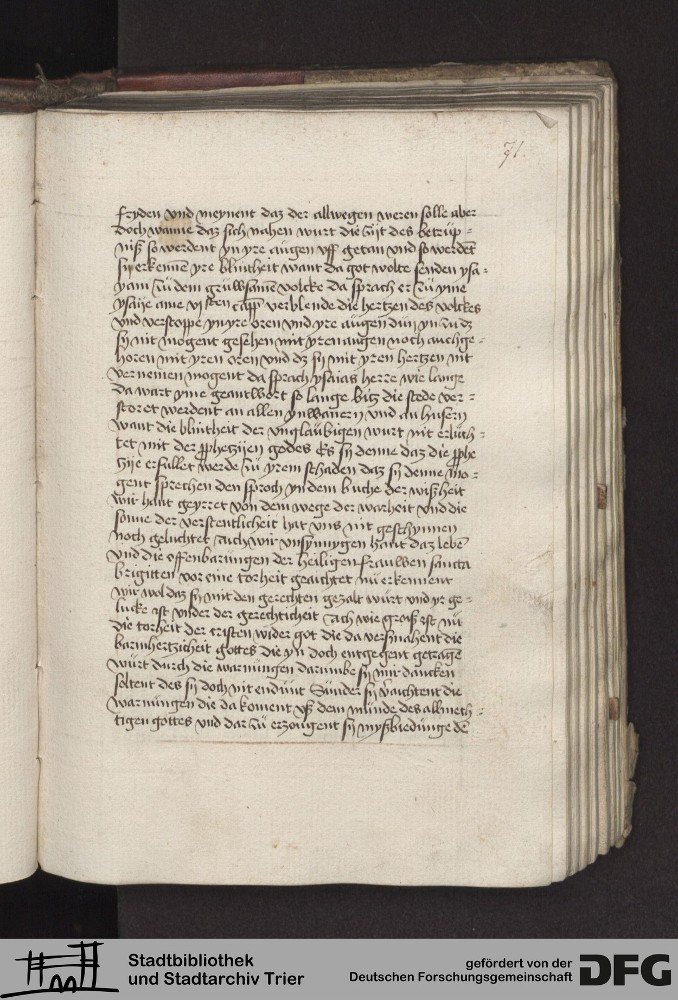 71.
fryden vnd meynent daz der allwegen weren solle aber
doch wanne daz sich nahen wurt die zijt des betrüp=
niß so werdent yn yre augen vff getan vnd so werdēt
sij erkennē yre blintheit want da got wolte senden ysa=
yam zü dem grüwsamē volcke da sprach er zü yme
ysaije ame vj sten capp verblende die hertzen des volckes
vnd verstoppe yn yre oren vnd yre augen dün yn zü dz
sij nit mogent gesehen mit yren augen noch auch ge=
horen mit yren oren vnd dz sij mit yren hertzen nit
vernemen mogent da sprach ysaias herre wie lange
da wart yme geantwort so lange bitz die stede ver=
storet werdent an allen ynwanern vnd an husern
want die blintheit der vngläubigen wurt nit erlüch=
tet mit der ꝓphetzijen godes Es sij denne daz die ꝓphe
tzije erfullet werde zü yrem schaden daz sij denne mo=
gent sprechen den sproch yn dem buche der wißheit
wir hant geyrret von dem wege der warheit vnd die
sonne der verstentlicheit hat vns nit geschynnen
noch geluchtet Auch wir vnsynnygen hant daz lebē
vnd die offenbarüngen der heiligen frauwen sancta
brigitten vor eine torheit geachtet nü erkennent
wir wol daz sij mit den gerechten gezalt würt vnd yr ge=
lucke ist vnder der gerechticheit Ach wie groiß ist nü
die torheit der cristen wider got die da versmahent die
barmhertzicheit gottes die yn doch entgegent getragē
würt durch die warnüngen darumbe sij mir dancken
soltent des sij doch nit endünt Sünder sij v̄achtent die
warnüngen die da koment vß dem münde des allmech=
tigen gottes vnd dar zü erzougent sij myßbiedünge dē
Stadtbibliothek
und Stadtarchiv Trier
gefördert von der
Deutschen Forschungsgemeinschaft
DFG